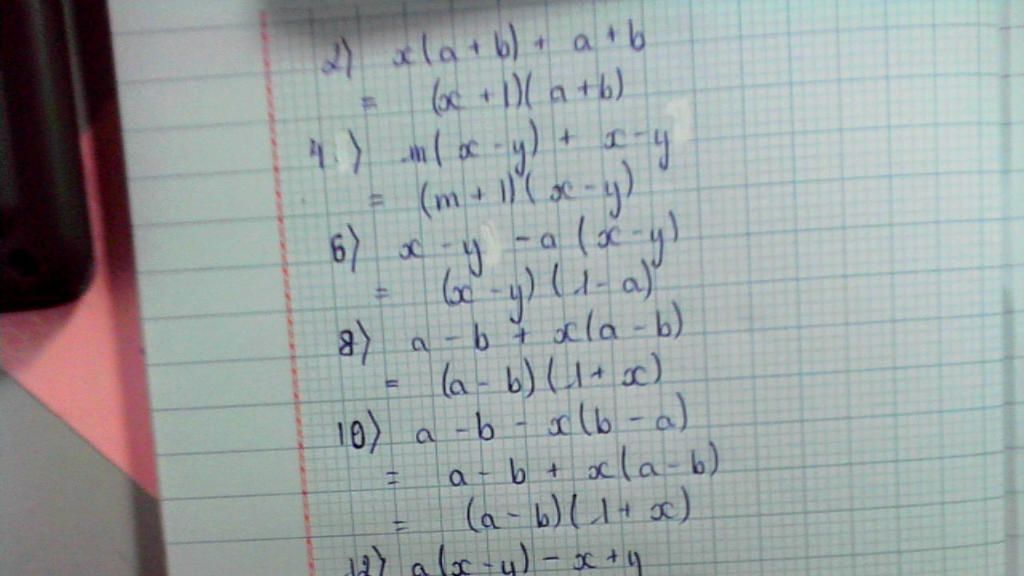 2) x(a + b) + a + b
= (x + 1)(a + b)
4.) m(x - y) + x - y
= (m + 1)(x - y)
6) x - y - a(x - y)
= (x - y)(1 - a)
8) a - b + x(a - b)
= (a - b)(1 + x)
10) a - b - x(b - a)
= a - b + x(a - b)
= (a - b)(1 + x)
12) a(x - y) - x + y